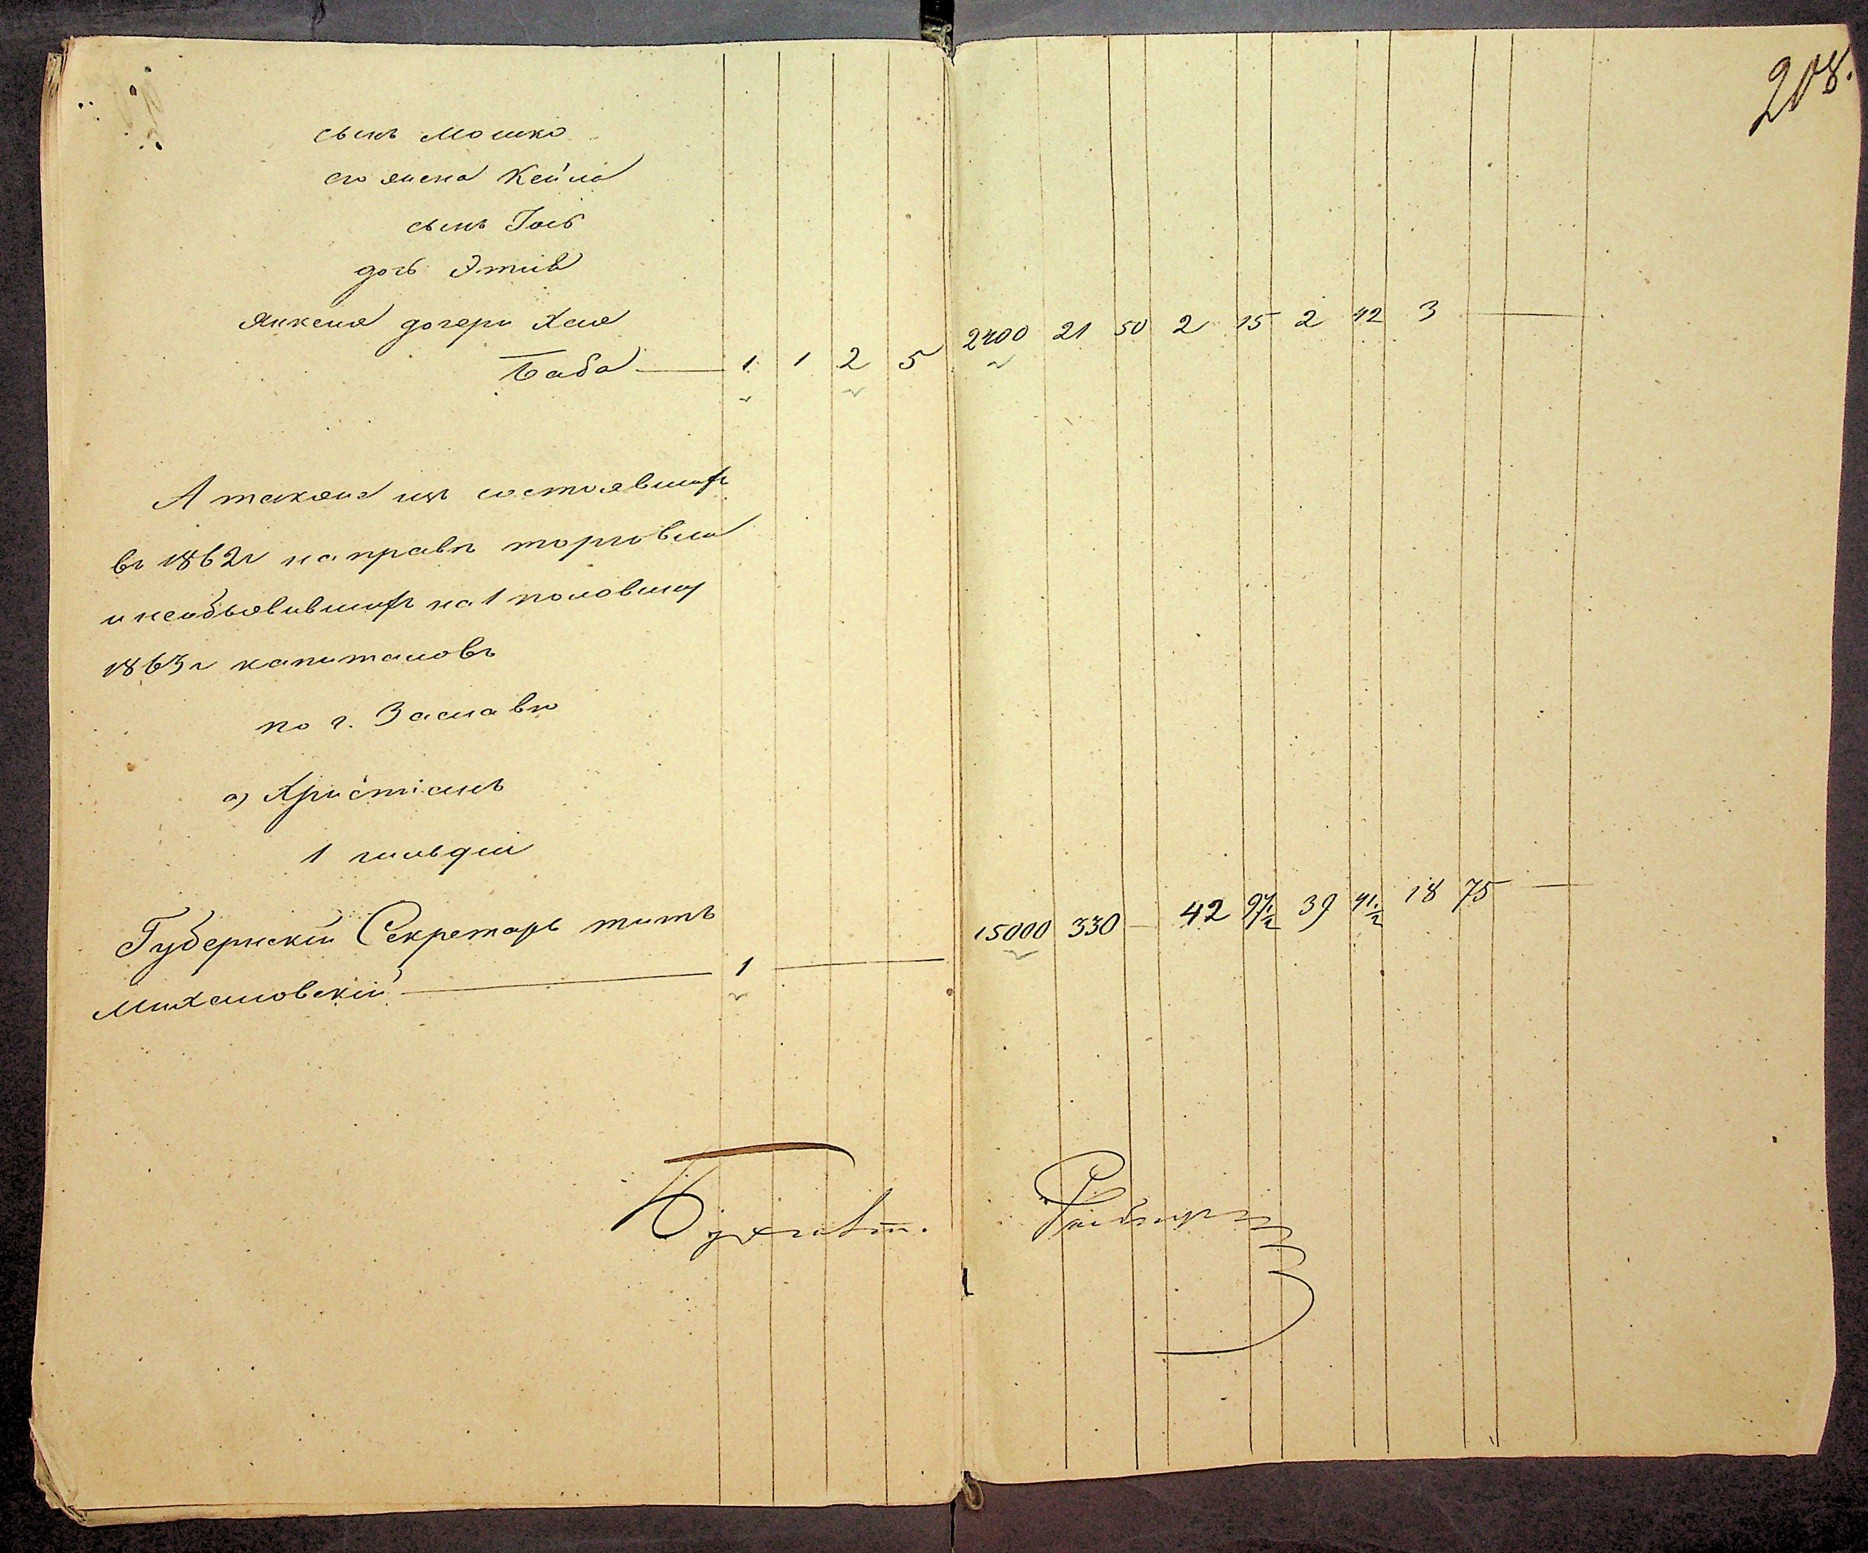 208.
сынъ Мошко
его жена Кейла
сынъ Іось
дочь Этля
Янкеля дочери Хая
Баба — 1 1 2 5 2400 21 50 2 15 2 42 3 —
А также изъ состоявшихъ
въ 1862 г на правѣ торговли
и необъявившихъ на 1 половину
1863 г капиталовъ
по г. Заславю
а) Христіанъ
1 гильдіи
Губернскій Секретарь Титъ
Михаловскій — 1 — 15000 330 — 42 97½ 39 41½ 18 75 —
Бухгалт.